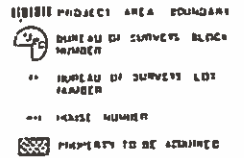 PROJECT AREA BOUNDARY
BUREAU OF SURVEYS BLOCK
NUMBER
BUREAU OF SURVEYS LOT
NUMBER
HOUSE NUMBER
PROPERTY TO BE ACQUIRED